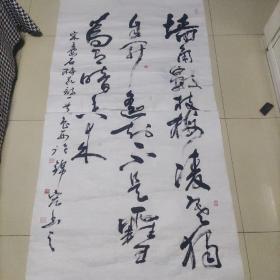 墙角数枝梅凌寒独
自开遥知不是雪
为有暗香来
宋王安石梅花诗一首